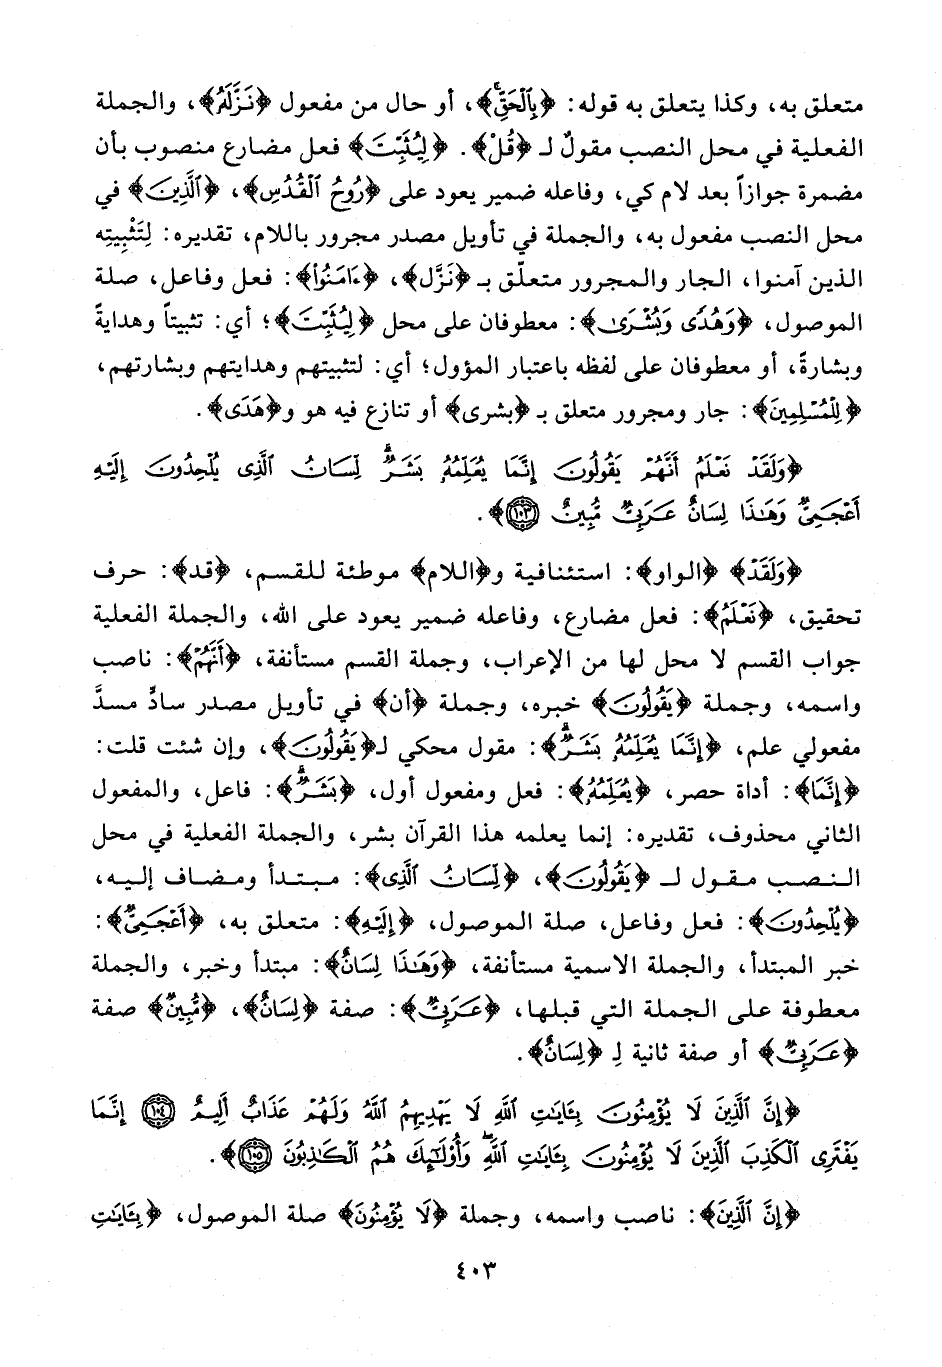 متعلق به، وكذا يتعلق به قوله: ﴿بِالْحَقِّ﴾، أو حال من مفعول ﴿نَزَّلَهُ﴾، والجملة
الفعلية في محل النصب مقولٌ لـ ﴿قُلْ﴾. ﴿لِيُثَبِّتَ﴾ فعل مضارع منصوب بأن
مضمرة جوازاً بعد لام كي، وفاعله ضمير يعود على ﴿رُوحُ الْقُدُسِ﴾، ﴿الَّذِينَ﴾ في
محل النصب مفعول به، والجملة في تأويل مصدر مجرور باللام، تقديره: لِتَثْبِيتِه
الذين آمنوا، الجار والمجرور متعلّق بـ ﴿نَزَّل﴾، ﴿ءَامَنُواْ﴾: فعل وفاعل، صلة
الموصول، ﴿وَهُدًى وَبُشْرَىٰ﴾: معطوفان على محل ﴿لِيُثَبِّتَ﴾؛ أي: تثبيتاً وهدايةً
وبشارةً، أو معطوفان على لفظه باعتبار المؤول؛ أي: لتثبيتهم وهدايتهم وبشارتهم،
﴿لِلْمُسْلِمِينَ﴾: جار ومجرور متعلق بـ ﴿بشرى﴾ أو تنازع فيه هو و﴿هَدَى﴾.
﴿وَلَقَدْ نَعْلَمُ أَنَّهُمْ يَقُولُونَ إِنَّمَا يُعَلِّمُهُ بَشَرٌ ۗ لِّسَانُ الَّذِى يُلْحِدُونَ إِلَيْهِ
أَعْجَمِىٌّ وَهَـٰذَا لِسَانٌ عَرَبِىٌّ مُّبِينٌ ١٠٣﴾.
﴿وَلَقَدْ﴾ ﴿الواو﴾: استئنافية و﴿اللام﴾ موطئة للقسم، ﴿قد﴾: حرف
تحقيق، ﴿نَعْلَمُ﴾: فعل مضارع، وفاعله ضمير يعود على الله، والجملة الفعلية
جواب القسم لا محل لها من الإعراب، وجملة القسم مستأنفة، ﴿أَنَّهُمْ﴾: ناصب
واسمه، وجملة ﴿يَقُولُونَ﴾ خبره، وجملة ﴿أن﴾ في تأويل مصدر سادٍّ مسدَّ
مفعولي علم، ﴿إِنَّمَا يُعَلِّمُهُ بَشَرٌ ۗ﴾: مقول محكي لـ﴿يَقُولُونَ﴾، وإن شئت قلت:
﴿إِنَّمَا﴾: أداة حصر، ﴿يُعَلِّمُهُ﴾: فعل ومفعول أول، ﴿بَشَرٌ ۗ﴾: فاعل، والمفعول
الثاني محذوف، تقديره: إنما يعلمه هذا القرآن بشر، والجملة الفعلية في محل
النصب مقول لـ ﴿يَقُولُونَ﴾، ﴿لِّسَانُ الَّذِى﴾: مبتدأ ومضاف إليه،
﴿يُلْحِدُونَ﴾: فعل وفاعل، صلة الموصول، ﴿إِلَيْهِ﴾: متعلق به، ﴿أَعْجَمِىٌّ﴾:
خبر المبتدأ، والجملة الاسمية مستأنفة، ﴿وَهَـٰذَا لِسَانٌ﴾: مبتدأ وخبر، والجملة
معطوفة على الجملة التي قبلها، ﴿عَرَبِىٌّ﴾: صفة ﴿لِسَانٌ﴾، ﴿مُّبِينٌ﴾ صفة
﴿عَرَبِىٌّ﴾ أو صفة ثانية لِـ ﴿لِسَانٌ﴾.
﴿إِنَّ الَّذِينَ لَا يُؤْمِنُونَ بِـَٔايَـٰتِ اللَّهِ لَا يَهْدِيهِمُ اللَّهُ وَلَهُمْ عَذَابٌ أَلِيمٌ ١٠٤ إِنَّمَا
يَفْتَرِى الْكَذِبَ الَّذِينَ لَا يُؤْمِنُونَ بِـَٔايَـٰتِ اللَّهِ ۖ وَأُوْلَـٰٓئِكَ هُمُ الْكَـٰذِبُونَ ١٠٥﴾.
﴿إِنَّ الَّذِينَ﴾: ناصب واسمه، وجملة ﴿لَا يُؤْمِنُونَ﴾ صلة الموصول، ﴿بِـَٔايَـٰتِ
٤٠٣